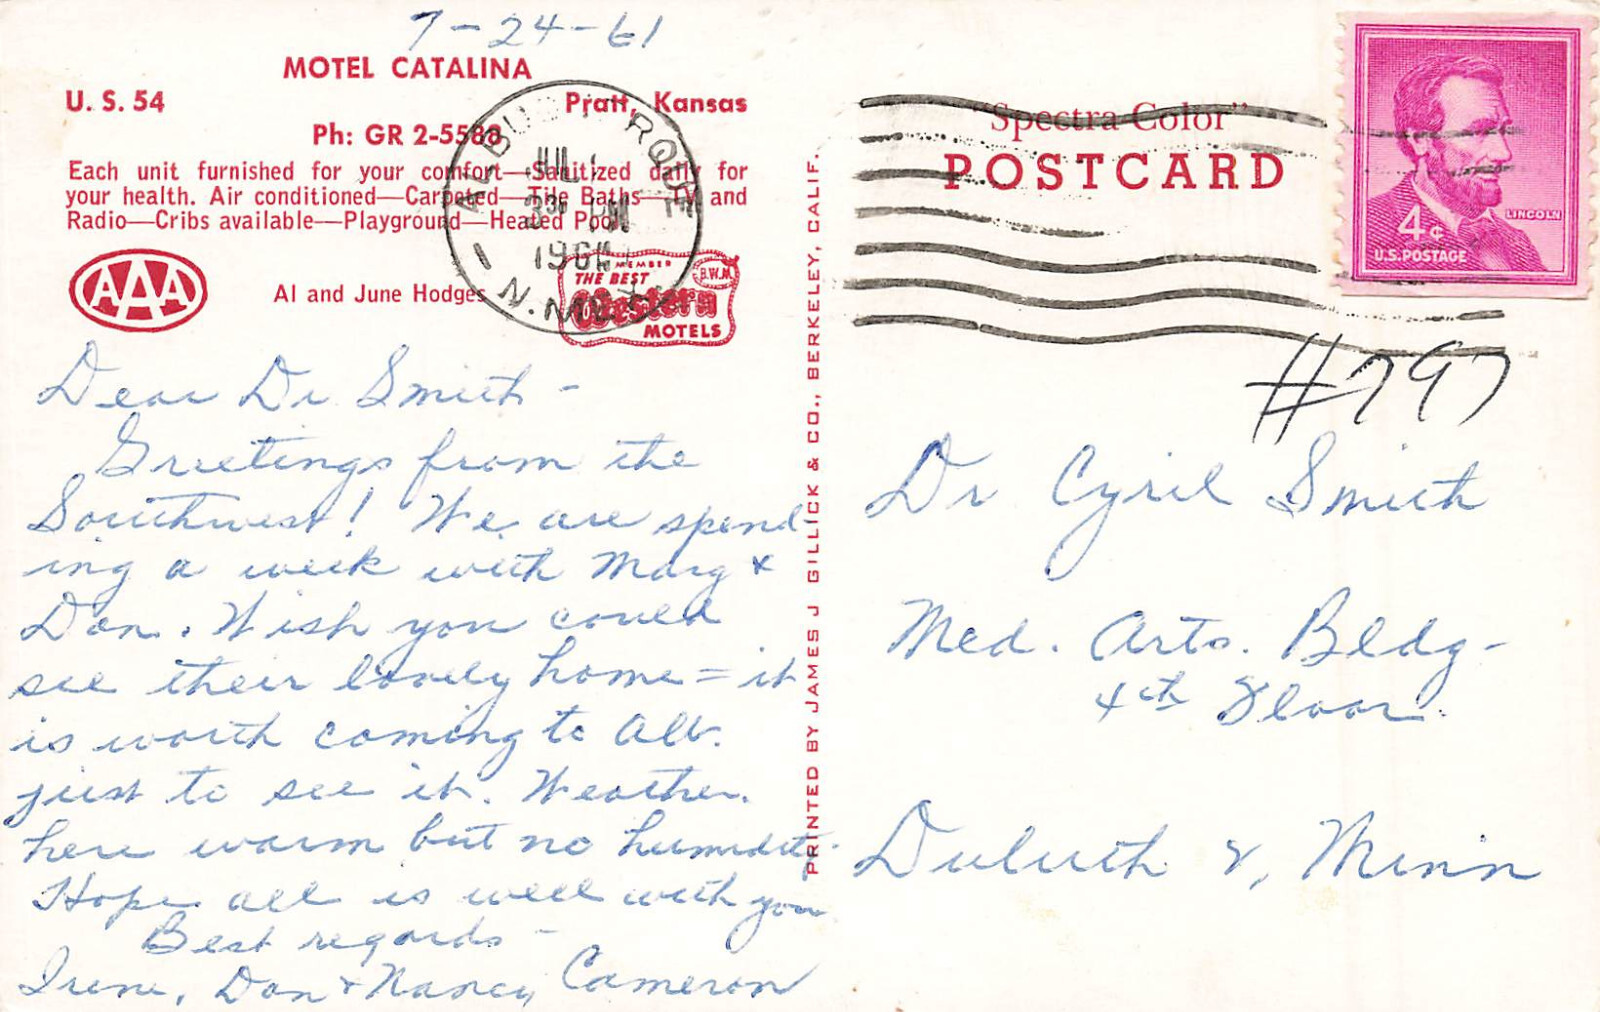 7-24-61
MOTEL CATALINA
U. S. 54 Pratt, Kansas
Ph: GR 2-5588
Each unit furnished for your comfort—Sanitized daily for
your health. Air conditioned—Carpeted—Tile Baths—TV and
Radio—Cribs available—Playground—Heated Pool
AAA
Al and June Hodges
MEMBER
THE BEST
Western
MOTELS
B.W.M.
ALBUQUERQUE
JUL
PM
N. MEX.
Dear Dr Smith -
Greetings from the
Southwest! We are spend
ing a week with Marg &
Don. Wish you could
see their lovely home = it
is worth coming to Alb.
just to see it. Weather
here warm but no humidity.
Hope all is well with you
Best regards -
Irene, Don & Nancy Cameron
PRINTED BY JAMES J GILLICK & CO., BERKELEY, CALIF.
"Spectra Color"
POSTCARD
4¢
LINCOLN
U.S. POSTAGE
#797
Dr Cyril Smith
Med. Arts. Bldg-
4th Floor.
Duluth 2, Minn